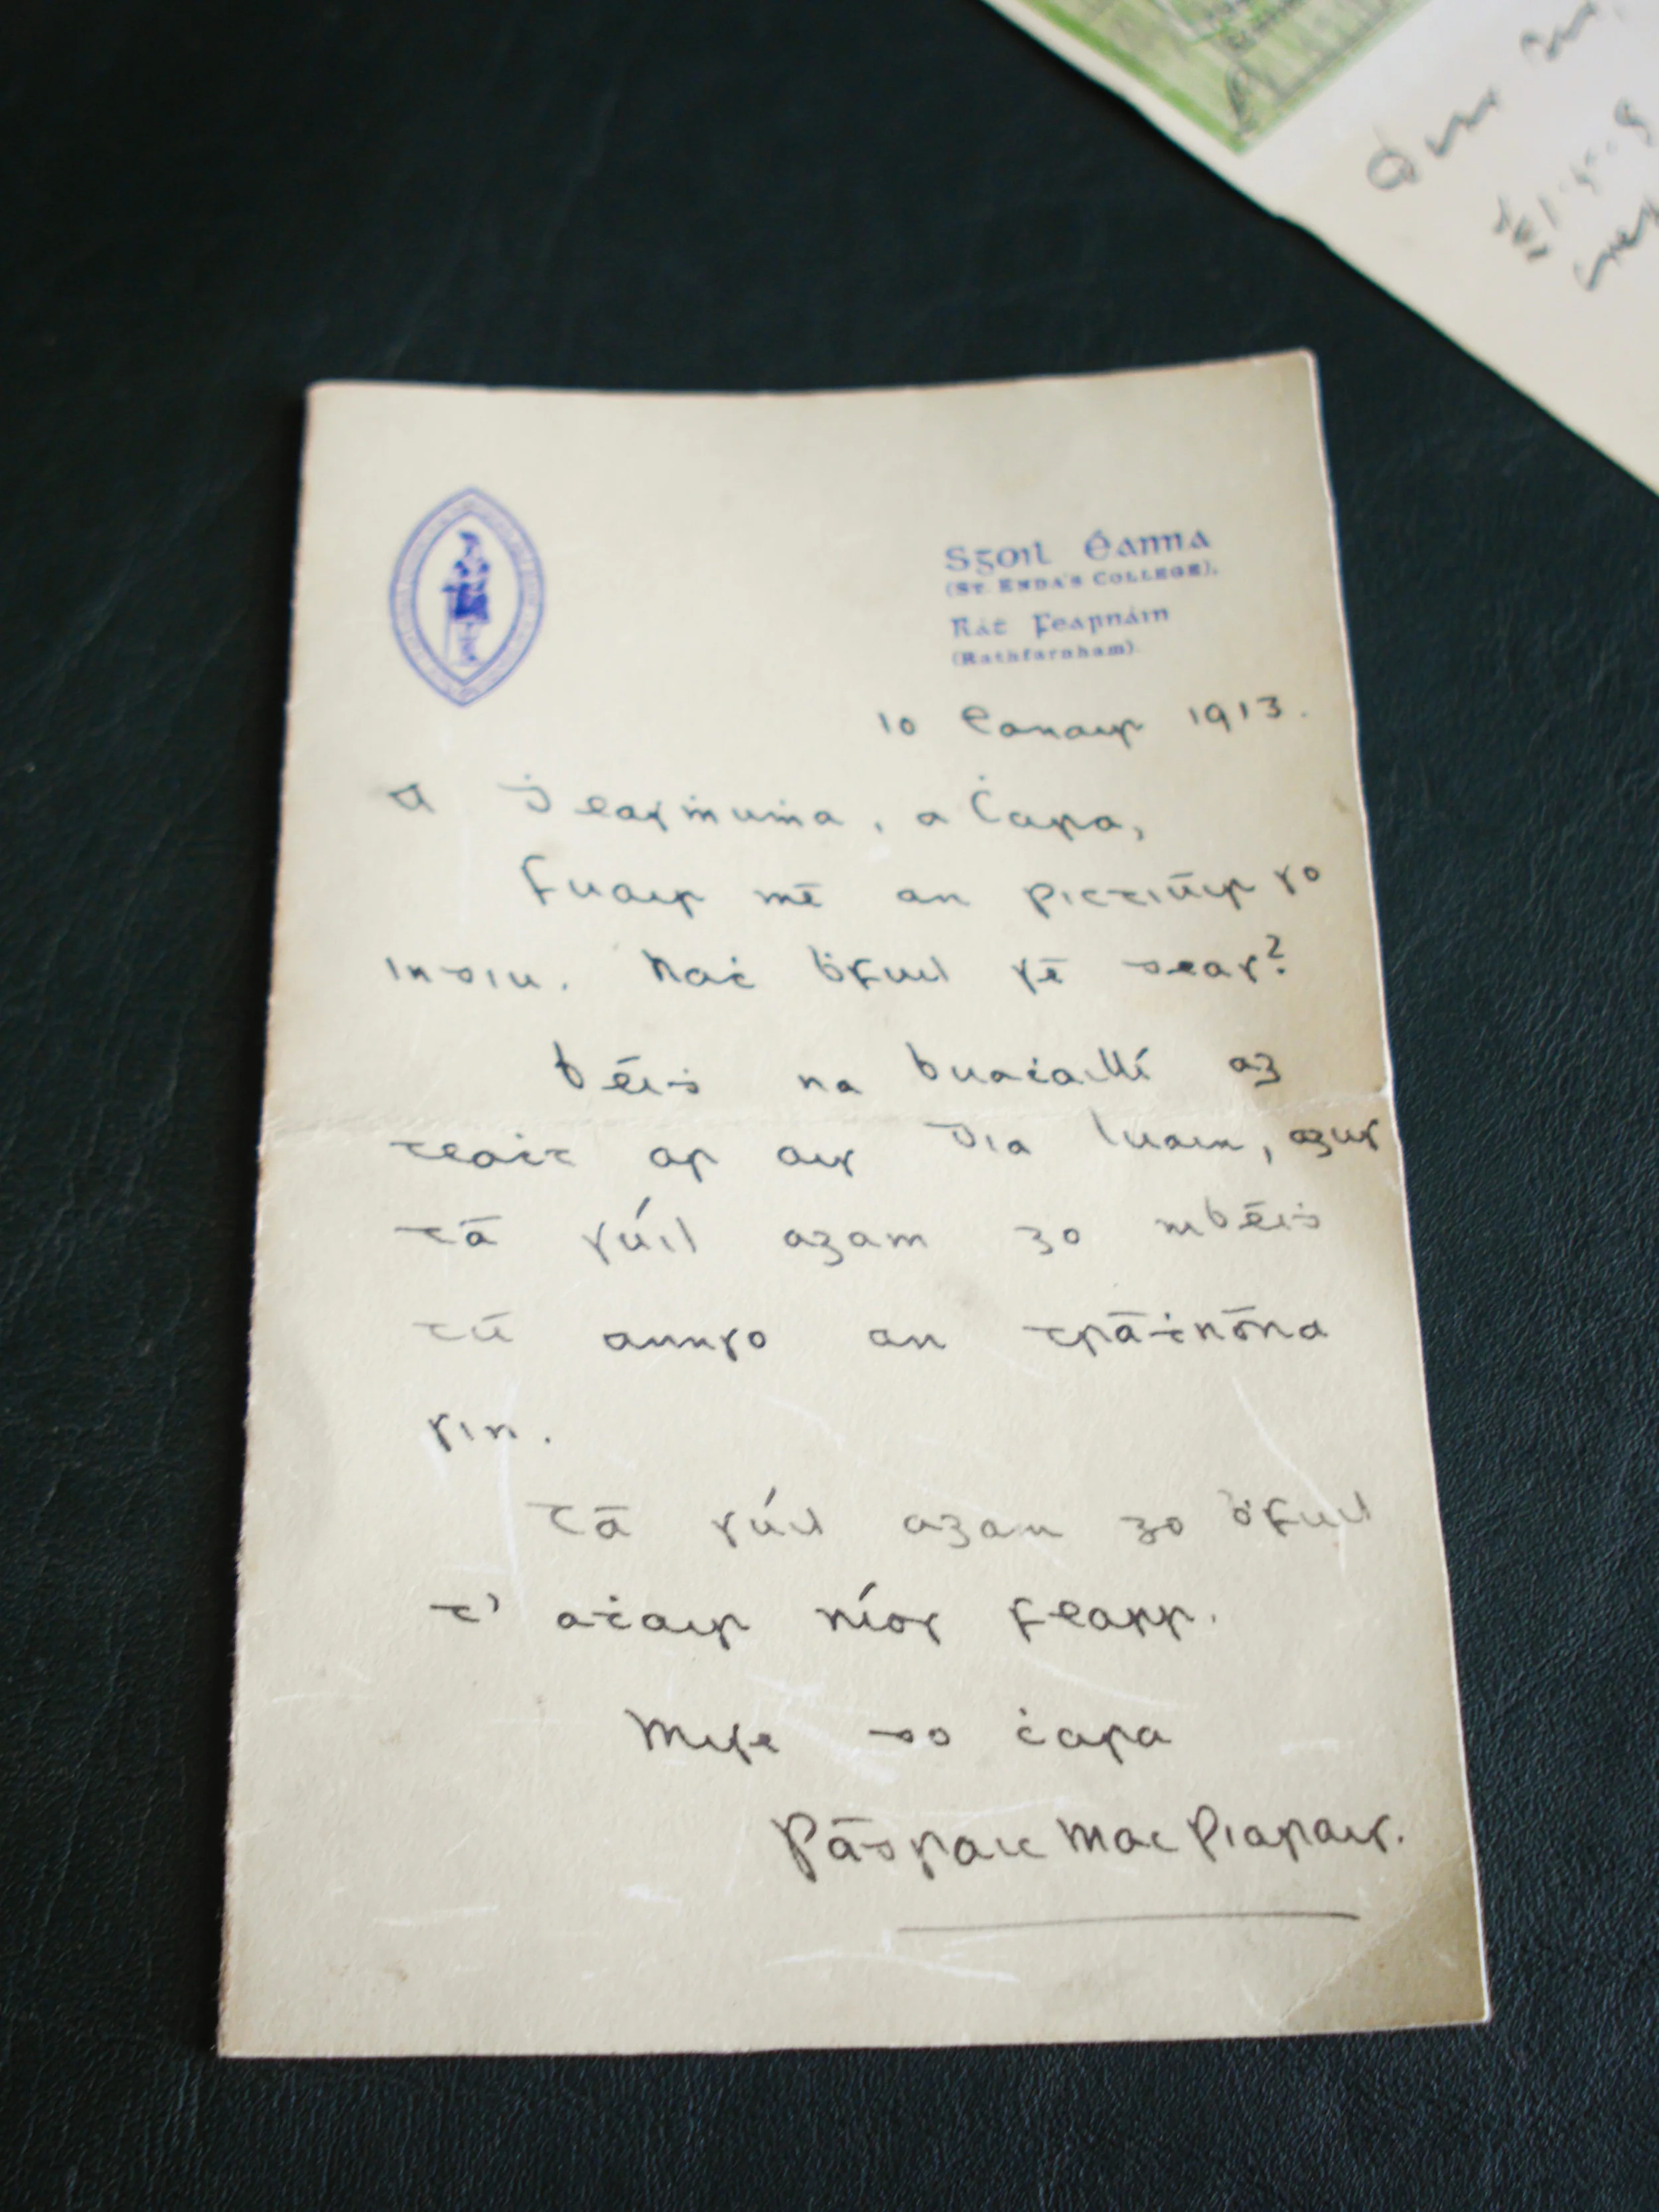 Sgoil Éanna
(St. Enda's College),
Ráṫ Fearnáin
(Rathfarnham).
10 Eanair 1913.
A Ḋeasṁuṁa, a Ċara,
Fuair mé an pictiúir so
indiu. Naċ ḃfuil sé deas?
Béiḋ na buaċaillí ag
teaċt ar ais Dia Luain, agus
tá súil agam go mbéiḋ
tú annso an tráṫnóna
sin.
Tá súil agam go ḃfuil
t' aṫair níos fearr.
Mise do ċara
Pádraic Mac Piarais.